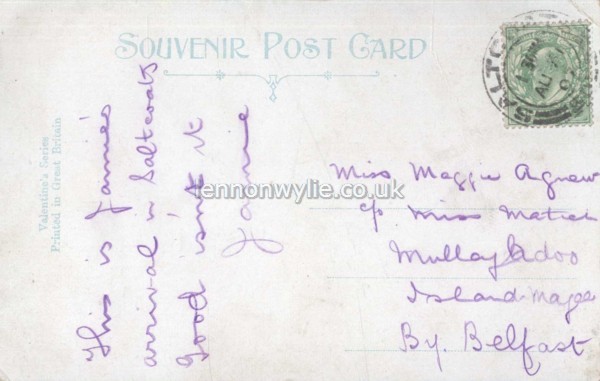 SOUVENIR POST CARD
Valentine's Series
Printed in Great Britain
This is Jamie's
arrival in Saltcoats
Good isn't it
Jamie
lennonwylie.co.uk
Miss Maggie Agnew
c/o Miss
Mullaghdoo
Island Magee
By. Belfast
SALTCO
AU